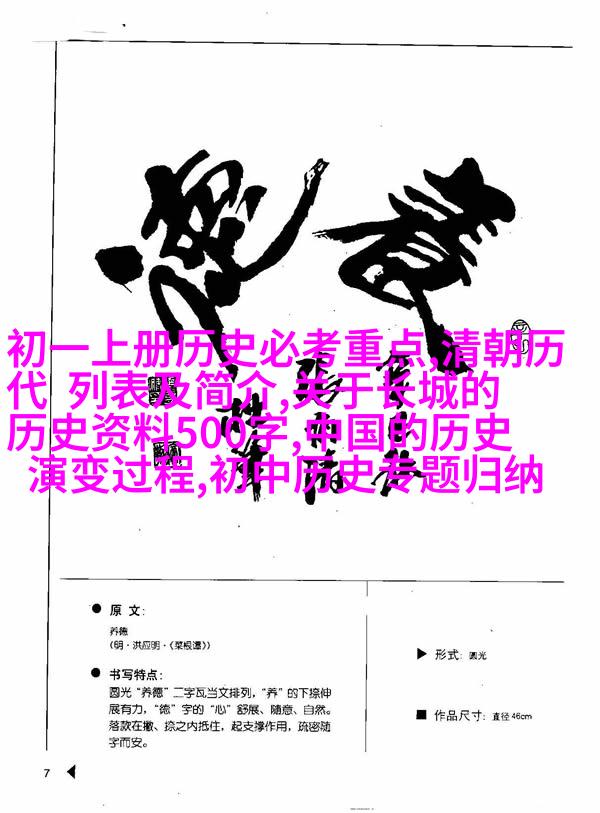 养德
初一上册历史必考重点,清朝历
代 列表及简介,关于长城的
历史资料500字,中国的历史
演变过程,初中历史专题归纳
● 原 文:
养德
(明·洪应明·《菜根谭》)
● 书写特点:
圆光“养德”二字瓦当文排列,“养”的下捺伸
展有力,“德”字的“心”舒展、随意、自然。
落款在撇、捺之内抵住,起支撑作用,疏密随
字而安。
▶ 形式: 圆光
■ 作品尺寸: 直径46cm
7